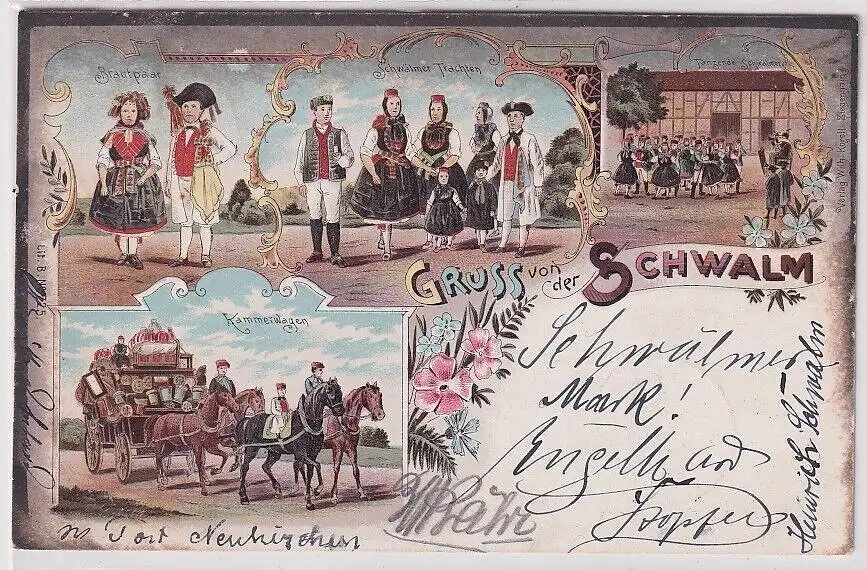 Brautpaar
Schwälmer Trachten
Tanzende Schwälmer
Verlag Wilh.
GRUSS von der SCHWALM
Kammerwagen
Schwälmer
Mark!
Engelhard
Hopfe
Heinrich Schwalm
Neukirchen